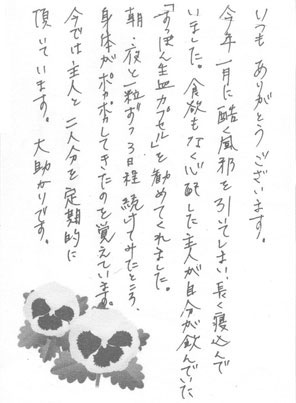 いつもありがとうございます。
今年一月に酷く風邪を引いてしまい、長く寝込んで
いました。食欲もなく心配した主人が自分が飲んでいた
「すっぽん生血カプセル」を勧めてくれました。
朝・夜と一粒ずつ3日程続けてみたところ、
身体がポカポカしてきたのを覚えています。
今では主人と二人分を定期的に
頂いています。大助かりです。